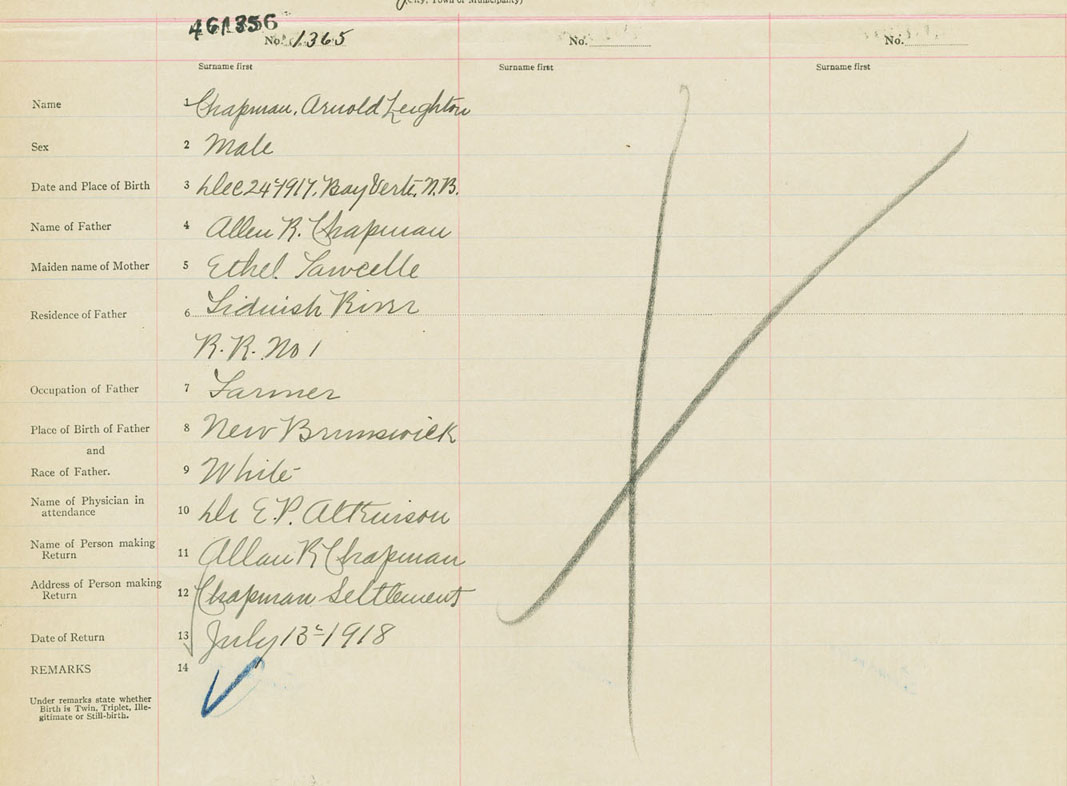 (City, Town or Municipality)
461356
No. 1365 No. No.
Surname first Surname first Surname first
Name 1 Chapman, Arnold Leighton
Sex 2 Male
Date and Place of Birth 3 Dec 24 1917. Bay Verte. N.B.
Name of Father 4 Allen R. Chapman
Maiden name of Mother 5 Ethel
Residence of Father 6 Tidnish River
R. R. No 1
Occupation of Father 7 Farmer
Place of Birth of Father 8 New Brunswick
and
Race of Father. 9 White
Name of Physician in
attendance 10 Dr E. P. Atkinson
Name of Person making
Return 11 Allan R Chapman
Address of Person making
Return 12 Chapman Settlement
Date of Return 13 July 13 - 1918
REMARKS 14
Under remarks state whether
Birth is Twin, Triplet, Ille-
gitimate or Still-birth.